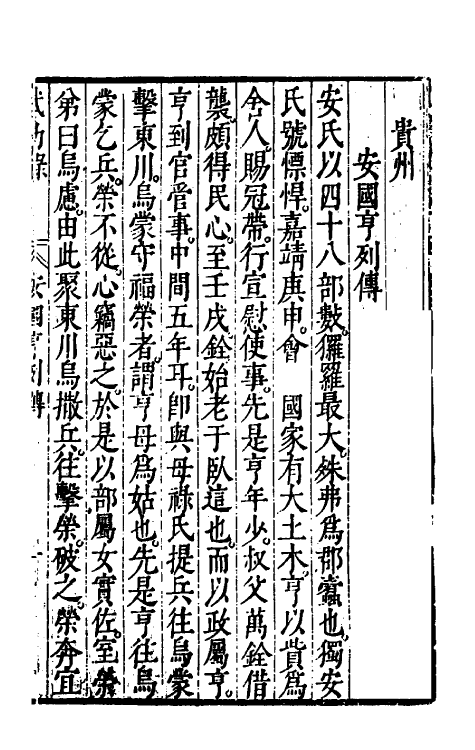 貴州
安國亨列傳
安氏以四十八部數玀羅最大銖弗為郡蠹也獨安
氏號慓悍嘉靖庚申會　國家有大土木亨以貲為
舍人賜冠帶行宣慰使事先是亨年少叔父萬銓借
襲頗得民心至壬戌銓始老于臥這也而以政屬亨
亨到官管事中間五年耳即與母祿氏提兵往烏蒙
擊東川烏蒙守福榮者謂亨母為姑也先是亨往烏
蒙乞兵榮不從心竊惡之於是以部屬女實佐室榮
弟曰烏慮由此聚東川烏撒兵往擊榮破之榮奔宜
武功錄　安國亨列傳